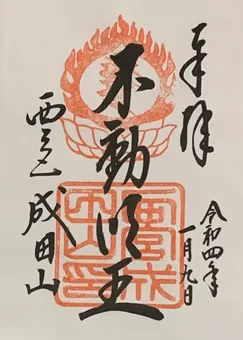 奉拝
不動明王
西宮 成田山
令和四年
一月九日